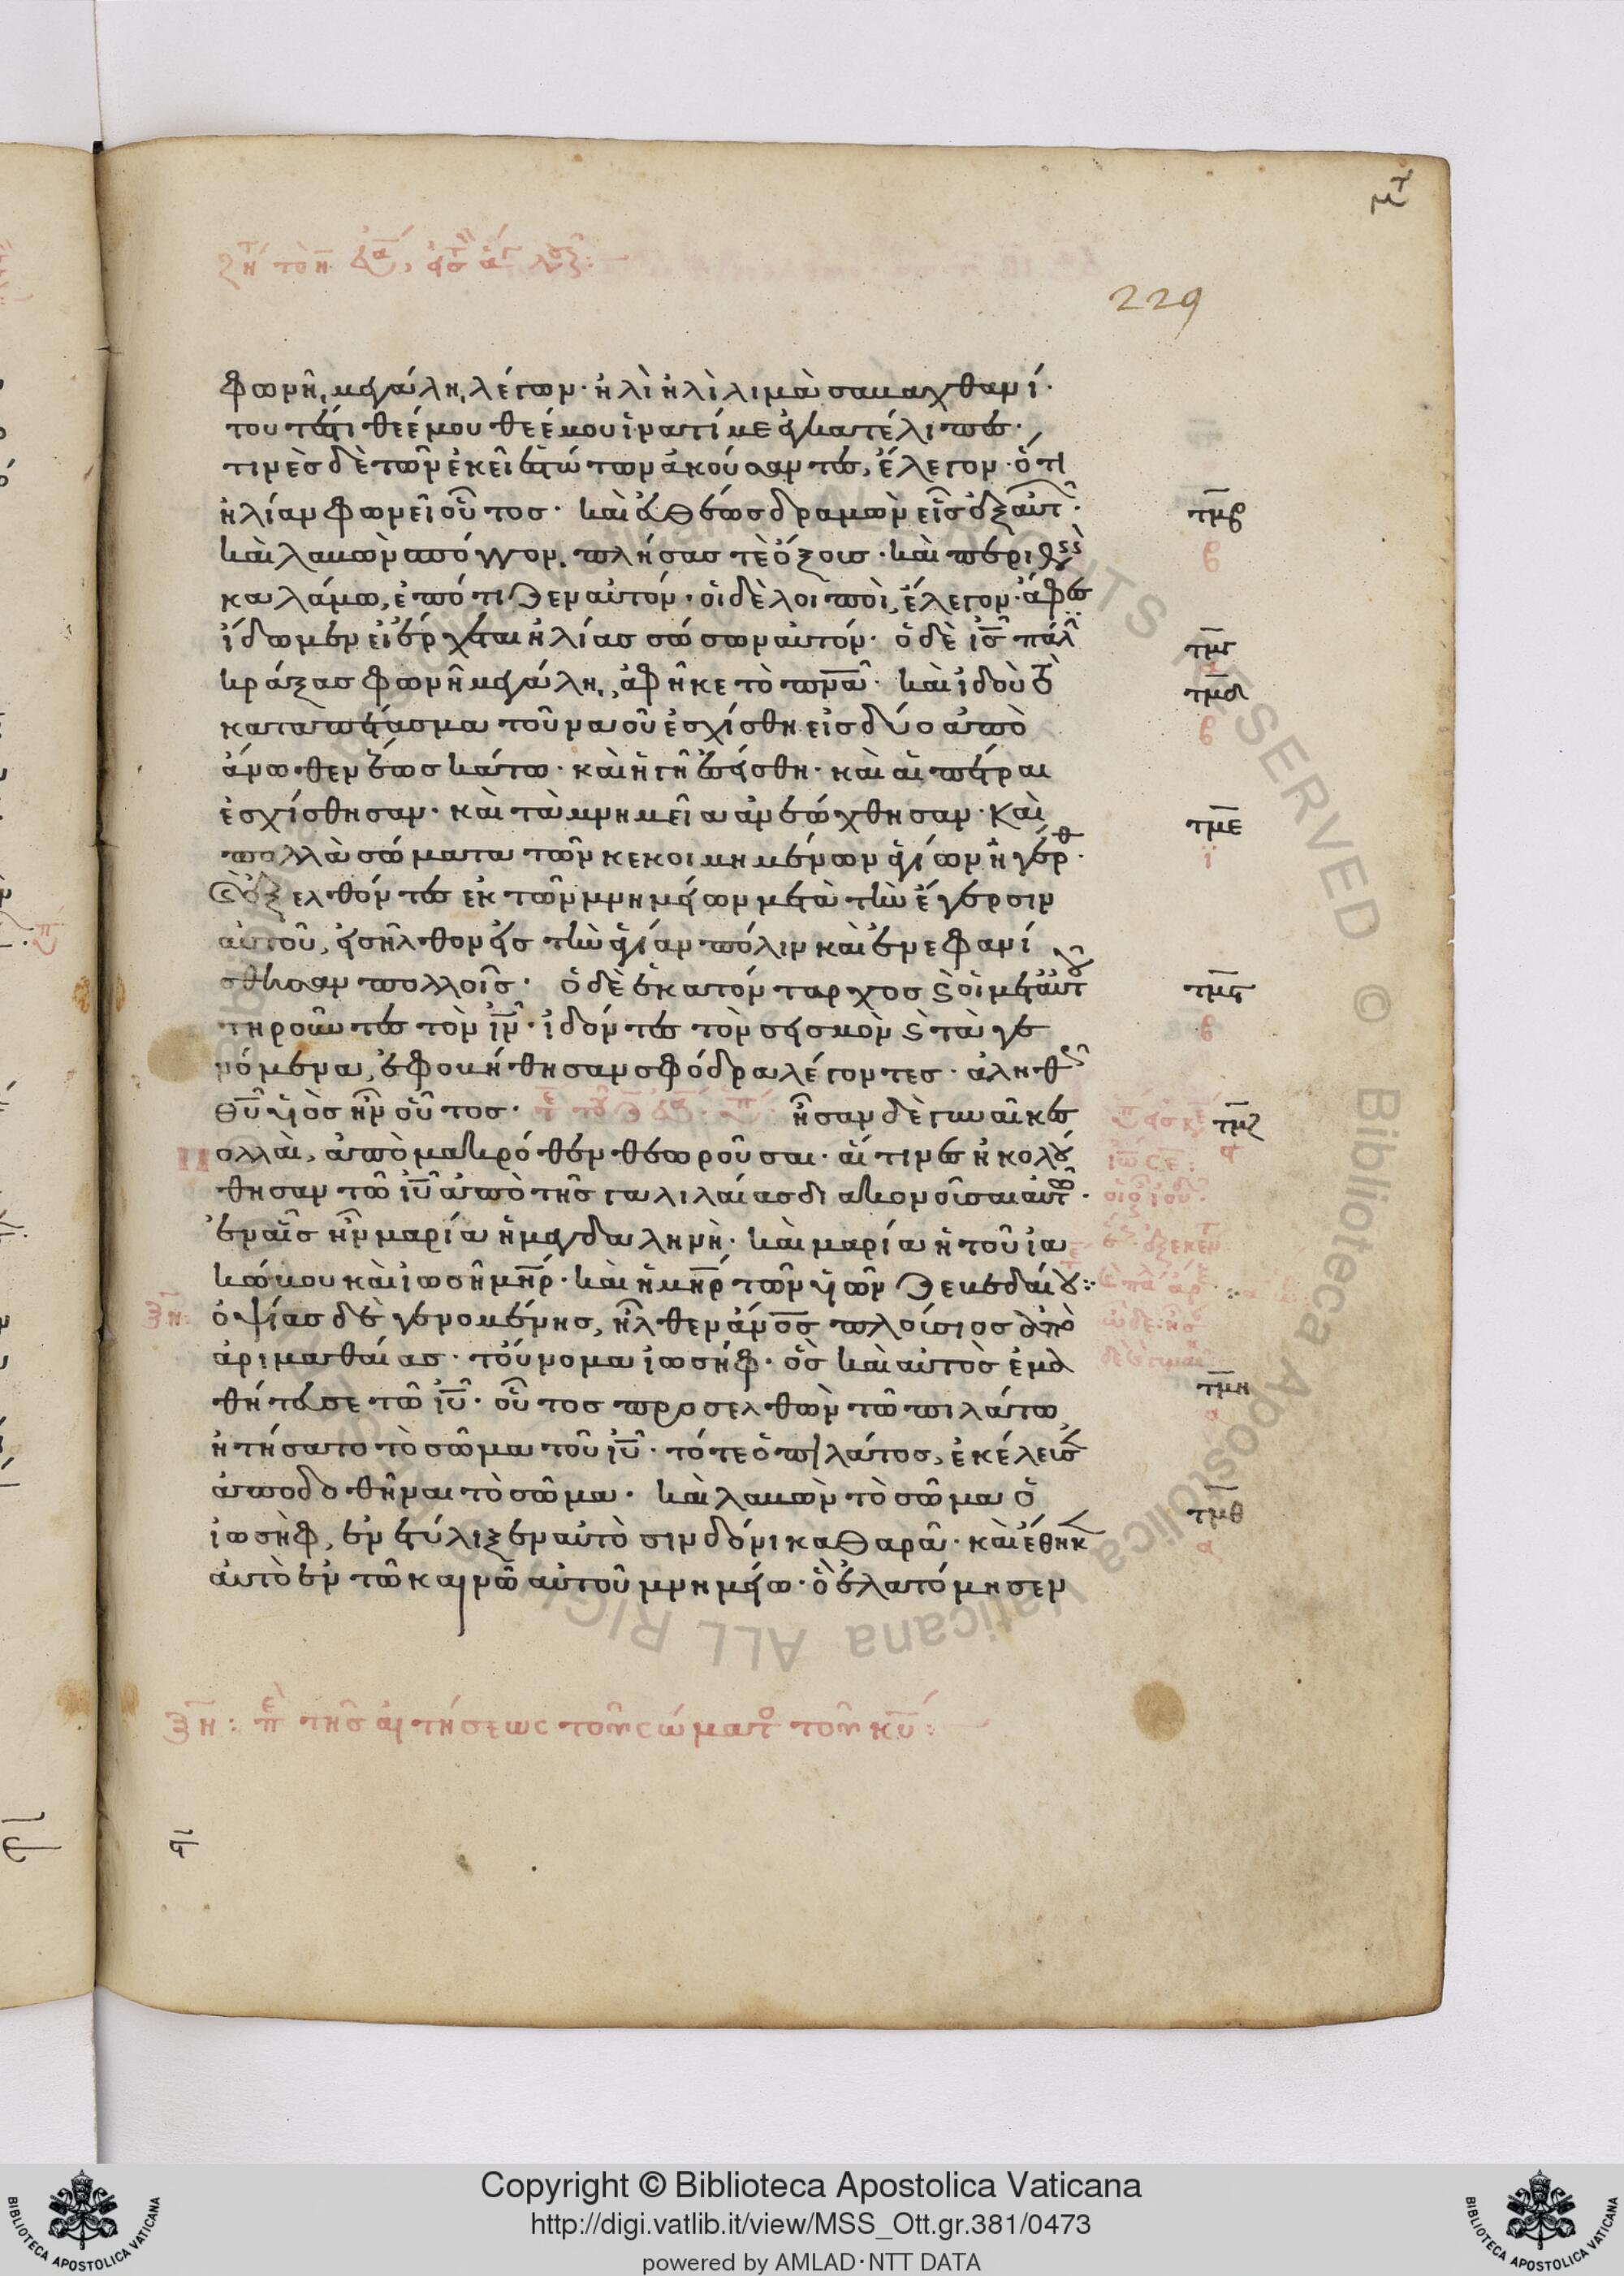 229
φωνῆ μεγάλη λέγων· ἡλὶ ἡλὶ λιμὰ σαβαχθανί·
τουτέστι θεέ μου θεέ μου ἱνατί με ἐγκατέλιπες·
τινὲς δὲ τῶν ἐκεῖ ἑστώτων ἀκούσαντες, ἔλεγον· ὅτι
ἠλίαν φωνεῖ οὗτος· καὶ εὐθέως δραμὼν εἷς ἐξ αὐτ·
τμβ
καὶ λαβὼν σπόγγον, πλήσας τε ὄξους· καὶ περιθεὶς
β
καλάμω, ἐπότιζεν αὐτόν· οἱ δὲ λοιποὶ, ἔλεγον· ἄφες
ἴδωμεν εἰ ἔρχεται ἠλίας σώσων αὐτόν· ὁ δὲ ις πάλ
τμγ
κράξας φωνῆ μεγάλη, ἀφῆκε τὸ πνα· καὶ ἰδοὺ τὸ
τμδ
καταπέτασμα τοῦ ναοῦ ἐσχίσθη εἰς δύο ἀπὸ
β
ἄνωθεν ἕως κάτω· καὶ ἡ γῆ ἐσείσθη· καὶ αἱ πέτραι
ἐσχίσθησαν· καὶ τὰ μνημεῖα ἀνεώχθησαν· καὶ
τμε
πολλὰ σώματα τῶν κεκοιμημένων ἁγίων ἠγέρθ·
ι
καὶ ἐξελθόντες ἐκ τῶν μνημείων μετὰ τὴν ἔγερσιν
αὐτοῦ, εἰσῆλθον εἰς τὴν ἁγίαν πόλιν καὶ ἐνεφανί
σθησαν πολλοῖς· ὁ δὲ ἑκατόνταρχος ϗ οἱ μετ αὐτοῦ
τμϛ
τηροῦντες τὸν ιν· ἰδόντες τὸν σεισμὸν ϗ τὰ γε
β
νόμενα, ἐφοβήθησαν σφόδρα λέγοντες· ἀληθῶς
θυ υἱὸς ἦν οὗτος· ἦσαν δὲ γυναῖκες
τμζ
ολλαὶ, ἀπὸ μακρόθεν θεωροῦσαι· αἵτινες ἠκολού
θησαν τῶ ιυ ἀπὸ τῆς γαλιλαίας διακονοῦσαι αὐτῶ·
ἐν αἷς ἦν μαρία ἡ μαγδαληνὴ· καὶ μαρία ἡ τοῦ ἰα
κώβου καὶ ἰωσῆ μηρ· καὶ ἡ μηρ τῶν υἱῶν ζεβεδαίου:
ξη: ὀψίας δὲ γενομένης, ἦλθεν ανος πλούσιος ἀπὸ
ἀριμαθαίας· τοὔνομα ἰωσήφ· ὃς καὶ αὐτὸς ἐμα
τμη
θήτευσε τῶ ιυ· οὗτος προσελθὼν τῶ πιλάτω
ἠτήσατο τὸ σῶμα τοῦ ιυ· τότε ὁ πιλάτος, ἐκέλευσεν
ἀποδοθῆναι τὸ σῶμα· καὶ λαβὼν τὸ σῶμα ὁ
τμθ
ἰωσὴφ, ἐνετύλιξεν αὐτὸ σινδόνι καθαρᾶ· καὶ ἔθηκεν
αὐτὸ ἐν τῶ καινῶ αὐτοῦ μνημείω· ὃ ἐλατόμησεν
ξη: πε τῆς αἰτήσεως τοῦ σώματος τοῦ κυ:
Copyright © Biblioteca Apostolica Vaticana
http://digi.vatlib.it/view/MSS_Ott.gr.381/0473
powered by AMLAD·NTT DATA
BIBLIOTECA APOSTOLICA VATICANA
BIBLIOTECA APOSTOLICA VATICANA